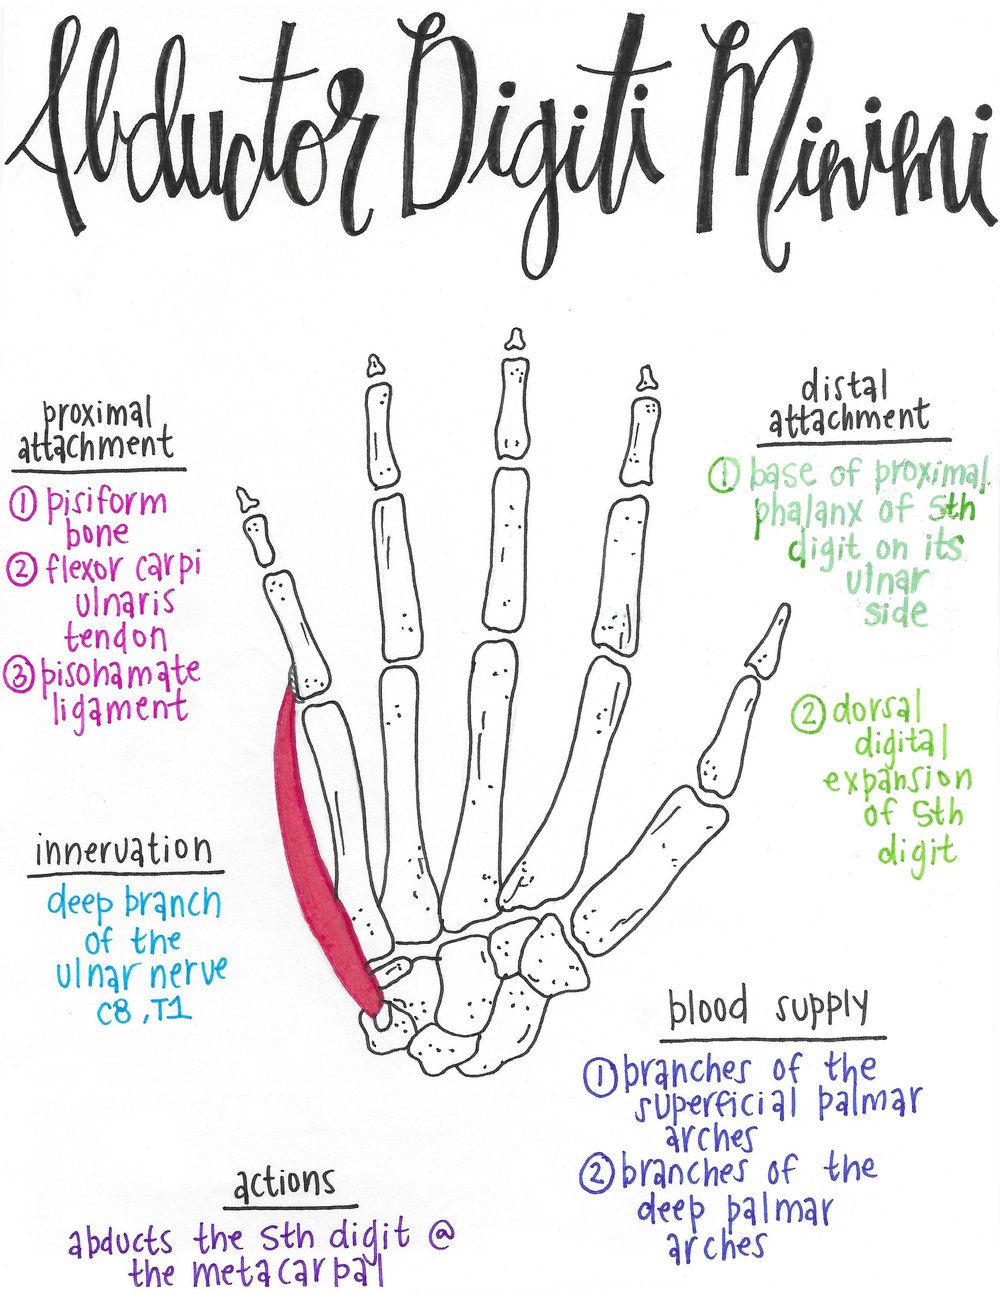 Abductor Digiti Minimi
proximal
attachment
① pisiform
bone
② flexor carpi
ulnaris
tendon
③ pisohamate
ligament
innervation
deep branch
of the
ulnar nerve
C8, T1
actions
abducts the 5th digit @
the metacarpal
distal
attachment
① base of proximal
phalanx of 5th
digit on its
ulnar
side
② dorsal
digital
expansion
of 5th
digit
blood supply
① branches of the
superficial palmar
arches
② branches of the
deep palmar
arches